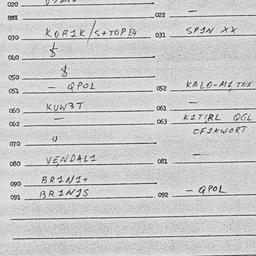 020
021
022 —
030 KOR1K/S+TOPE4
031 SP1N XX
$
040
$
050
051 - QPOL
052 KALO-M1
060 KUW3T
061 —
062 —
063 K1T1RL QGL
OF1KWORT
070 U
080 VENDAL1
081 —
090 BR1N1+
091 BR1N1S
092 - QPOL